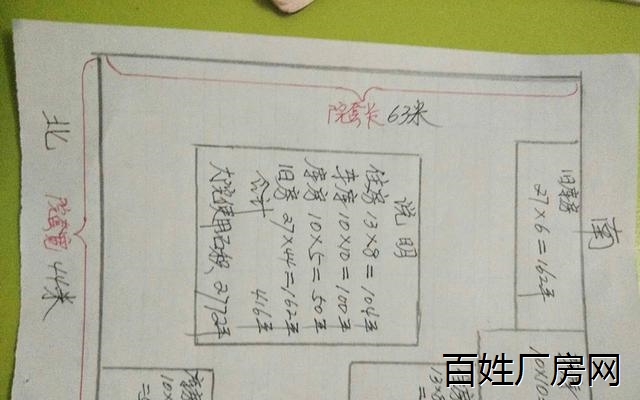 院套长 63米
北
院套宽 44米
南
旧库房
27×6=162平
说明
住房 13×8=104平
车库 10×10=100平
库房 10×5=50平
旧房 27×6=162平
合计 416平
大院使用面积 2772平
10×10=
13×8
=
库房
10×
=
百姓厂房网